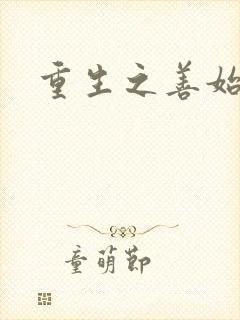 重生之善始
童萌节